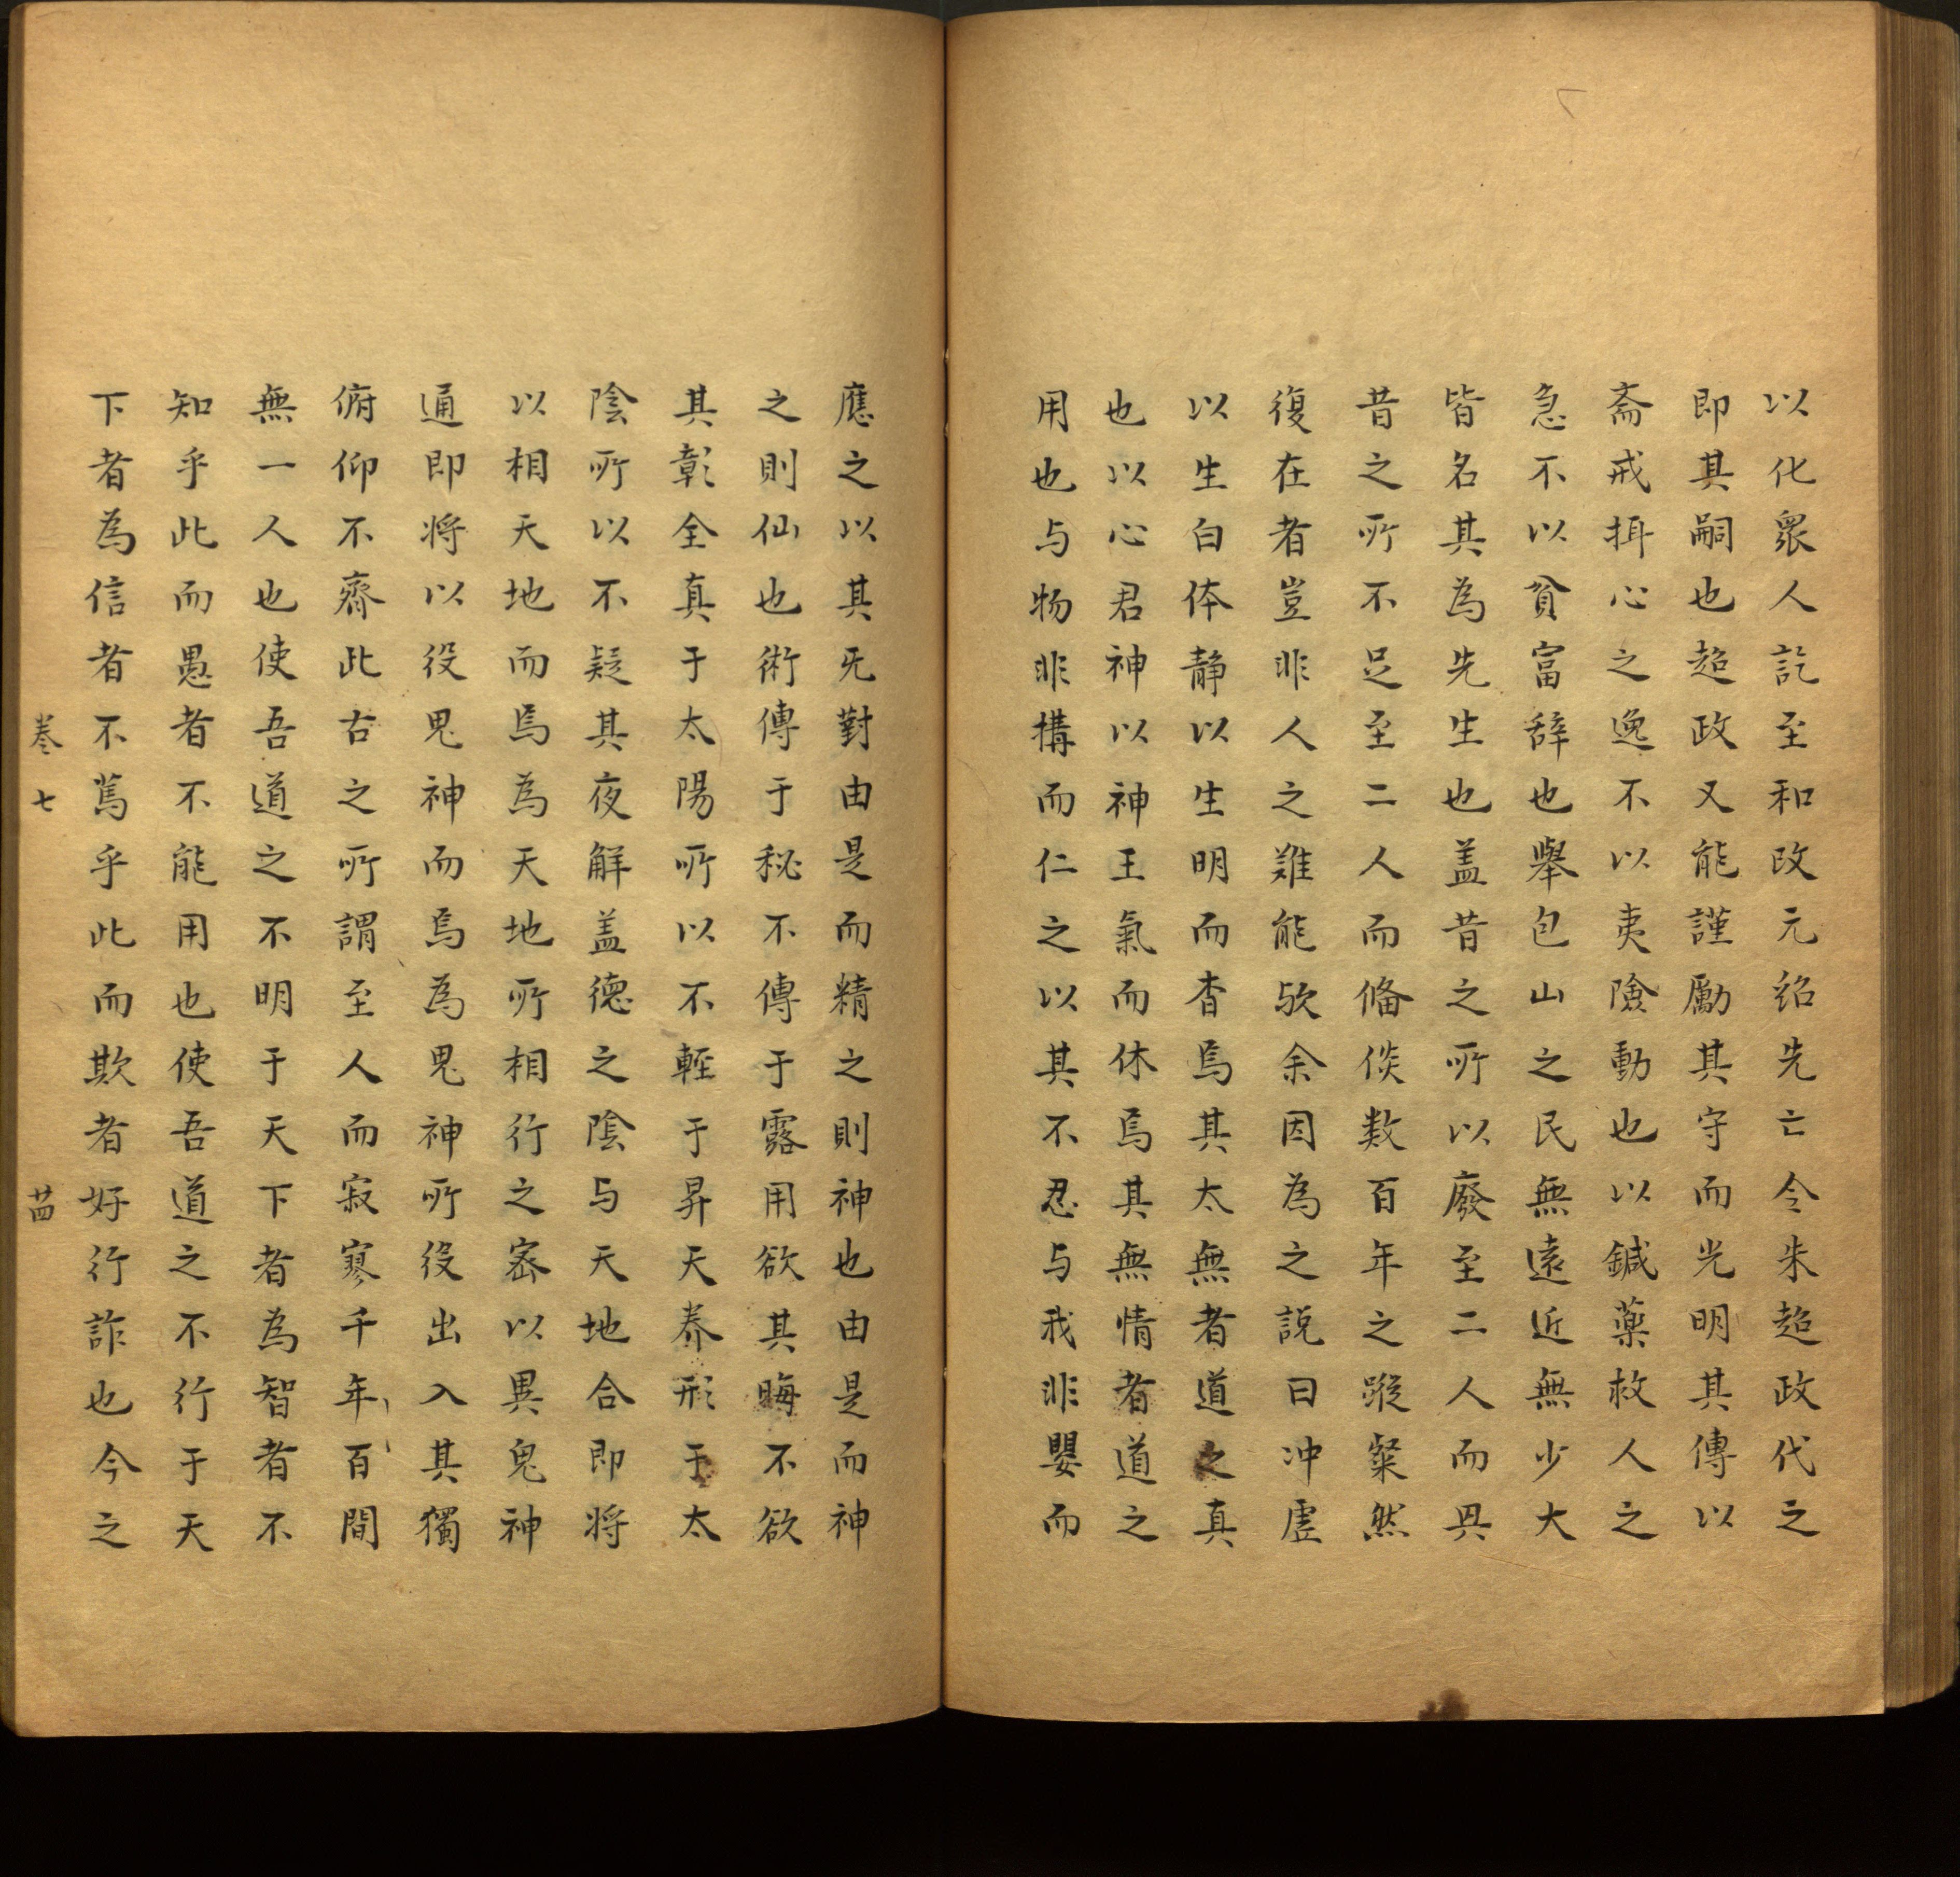 以化衆人訖至和改元紹先亡今朱超政代之
即其嗣也超政又能謹勵其守而光明其傳以
齋戒揖心之逸不以夷險動也以鍼藥救人之
急不以貧富辞也舉包山之民無遠近無少大
皆名其為先生也盖昔之所以廢至二人而興
昔之所不足至二人而俻倓数百年之蹤粲然
復在者豈非人之難能欤余因為之說曰冲虛
以生白体静以生明而杳焉其太無者道之真
也以心君神以神王氣而休焉其無情者道之
用也与物非搆而仁之以其不忍与我非嬰而
應之以其无對由是而精之則神也由是而神
之則仙也術傳于秘不傳于露用欲其晦不欲
其彰全真于太陽所以不輕于昇天养形于太
陰所以不疑其夜解盖德之陰与天地合即将
以相天地而焉為天地所相行之宻以異鬼神
通即将以役鬼神而焉為鬼神所役出入其獨
俯仰不齊此古之所謂至人而寂寥千年百間
無一人也使吾道之不明于天下者為智者不
知乎此而愚者不能用也使吾道之不行于天
下者為信者不篤乎此而欺者好行詐也今之
卷七 廿四